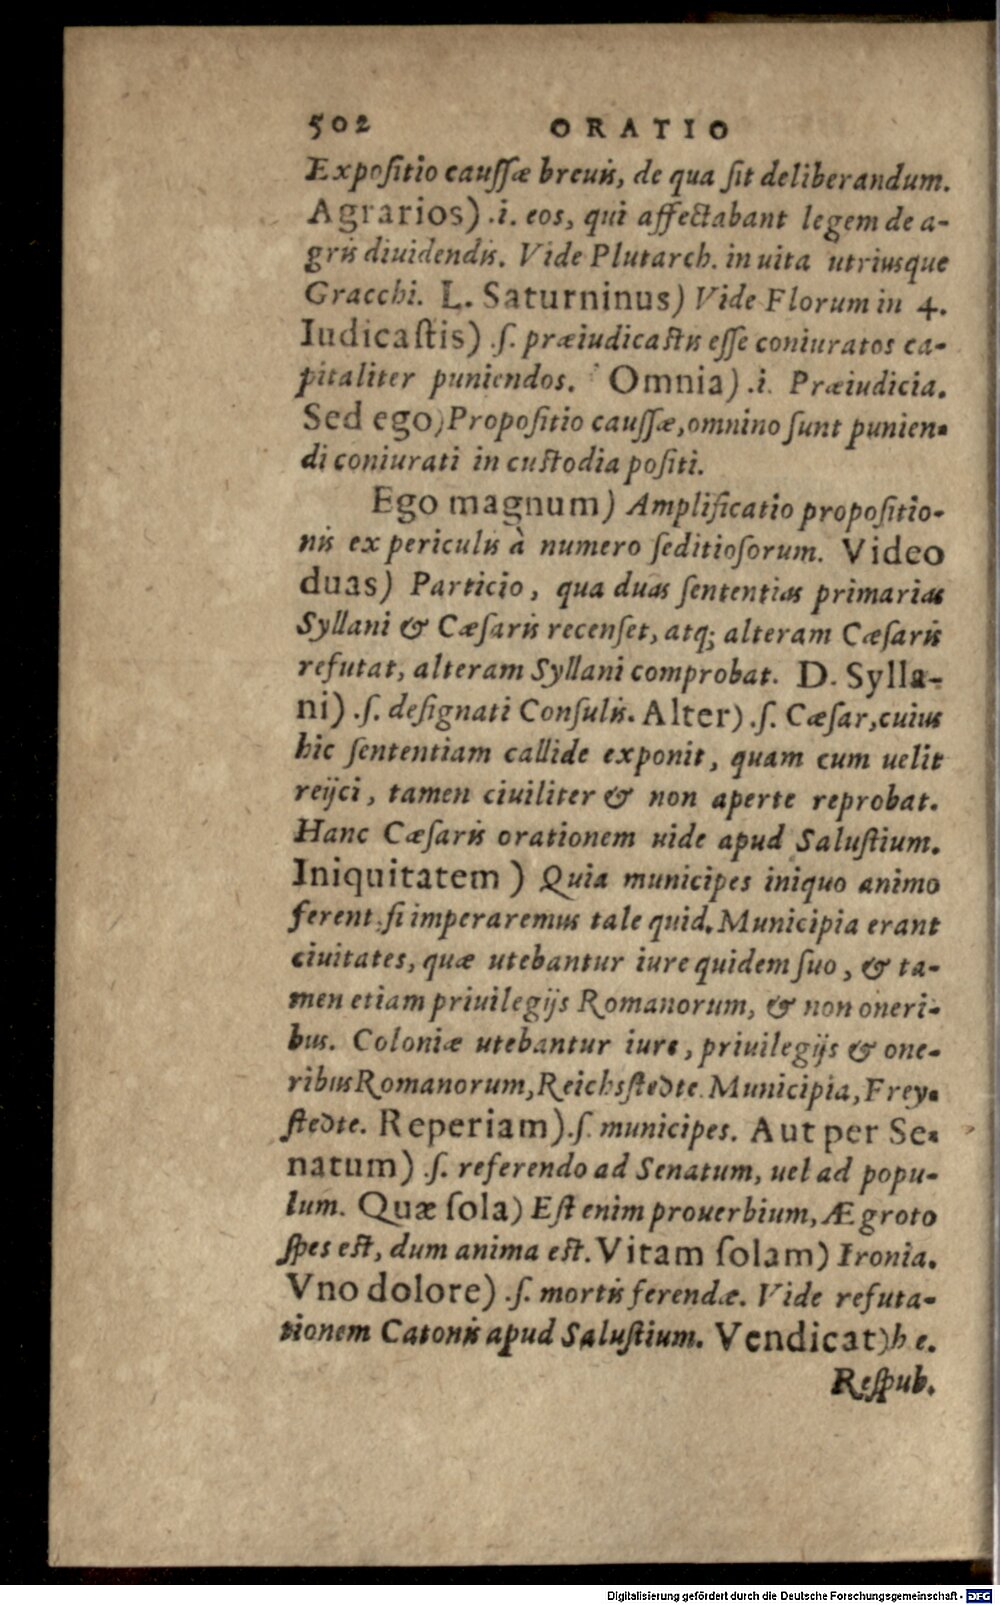 502 ORATIO
Expoſitio cauſſæ breuis, de qua ſit deliberandum.
Agrarios) .i. eos, qui affectabant legem de a-
gris diuidendis. Vide Plutarch. in uita utriusque
Gracchi. L. Saturninus) Vide Florum in 4.
Iudicaſtis) .ſ. præiudicaſtis eſſe coniuratos ca-
pitaliter puniendos. Omnia) .i. Præiudicia.
Sed ego) Propoſitio cauſſæ, omnino ſunt punien-
di coniurati in cuſtodia poſiti.
Ego magnum) Amplificatio propoſitio-
nis ex periculis à numero ſeditioſorum. Video
duas) Particio, qua duas ſententias primarias
Syllani & Cæſaris recenſet, atq; alteram Cæſaris
refutat, alteram Syllani comprobat. D. Sylla-
ni) .ſ. deſignati Conſulis. Alter) .ſ. Cæſar, cuius
hic ſententiam callide exponit, quam cum uelit
reijci, tamen ciuiliter & non aperte reprobat.
Hanc Cæſaris orationem uide apud Saluſtium.
Iniquitatem ) Quia municipes iniquo animo
ferent, ſi imperaremus tale quid. Municipia erant
ciuitates, quæ utebantur iure quidem ſuo, & ta-
men etiam priuilegijs Romanorum, & non oneri-
bus. Coloniæ utebantur iure, priuilegijs & one-
ribus Romanorum, Reichsſtedte. Municipia, Frey-
ſtedte. Reperiam) .ſ. municipes. Aut per Se-
natum) .ſ. referendo ad Senatum, uel ad popu-
lum. Quæ ſola) Eſt enim prouerbium, Ægroto
ſpes eſt, dum anima eſt. Vitam ſolam) Ironia.
Vno dolore) .ſ. mortis ferendæ. Vide refuta-
tionem Catonis apud Saluſtium. Vendicat) h e.
Reſpub.
Digitalisierung gefördert durch die Deutsche Forschungsgemeinschaft - DFG